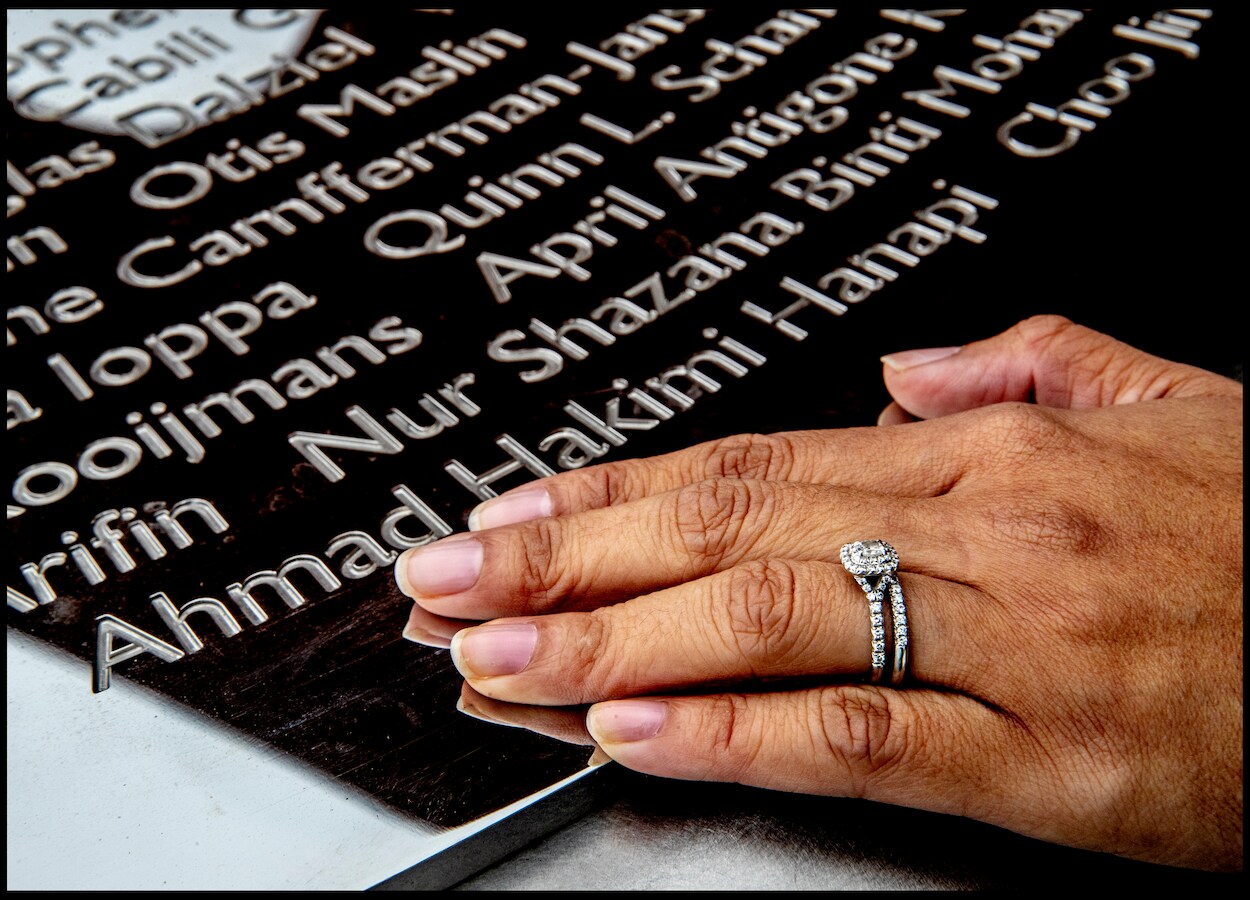 opher
Cabili G
las Dalziel
in Otis Maslin
ne Camfferman-Jans
a Ioppa Quinn L. Schan
ooijmans April Antigone
Arifin Nur Shazana Binti Moha
Ahmad Hakimi Hanapi Choo Jin